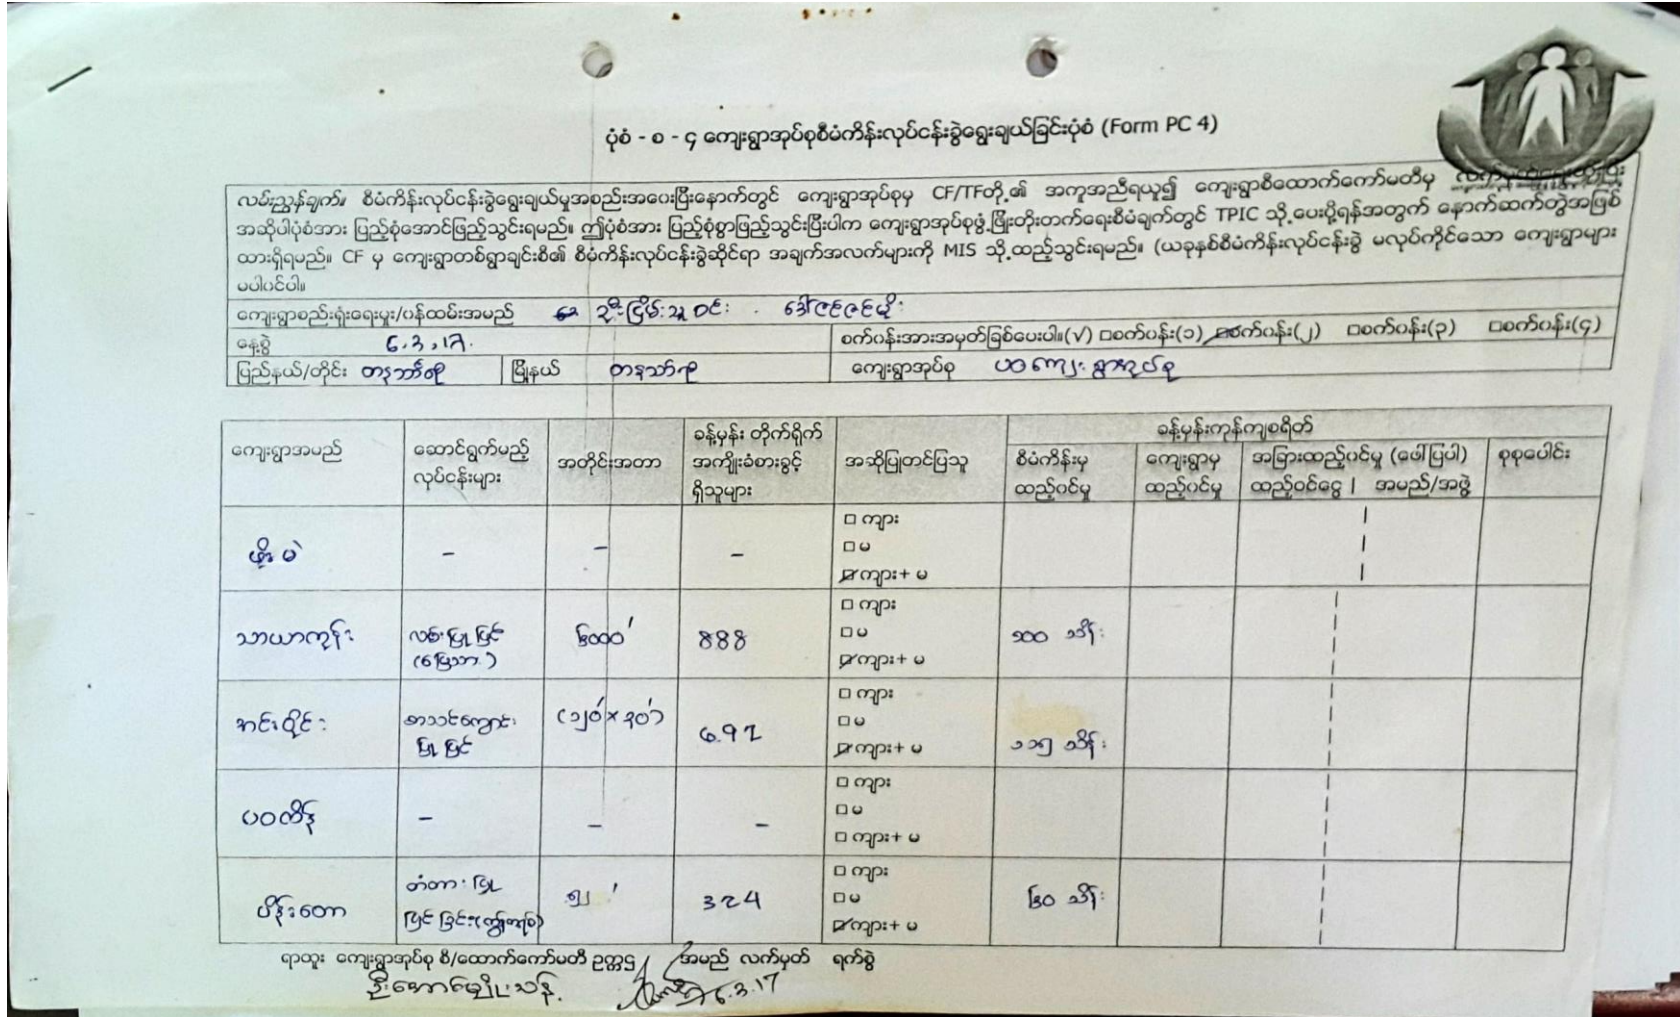 ပုံစံ - စ - ၄ ကျေးရွာအုပ်စုစီမံကိန်းလုပ်ငန်းခွဲရွေးချယ်ခြင်းပုံစံ (Form PC 4)
လမ်းညွှန်ချက်။ စီမံကိန်းလုပ်ငန်းခွဲရွေးချယ်မှုအစည်းအဝေးပြီးနောက်တွင် ကျေးရွာအုပ်စုမှ CF/TFတို့၏ အကူအညီရယူ၍ ကျေးရွာစီထောက်ကော်မတီမှ
အဆိုပါပုံစံအား ပြည့်စုံအောင်ဖြည့်သွင်းရမည်။ ဤပုံစံအား ပြည့်စုံစွာဖြည့်သွင်းပြီးပါက ကျေးရွာအုပ်စုဖွံ့ဖြိုးတိုးတက်ရေးစီမံချက်တွင် TPIC သို့ပေးပို့ရန်အတွက် နောက်ဆက်တွဲအဖြစ်
ထားရှိရမည်။ CF မှ ကျေးရွာတစ်ရွာချင်းစီ၏ စီမံကိန်းလုပ်ငန်းခွဲဆိုင်ရာ အချက်အလက်များကို MIS သို့ထည့်သွင်းရမည်။ (ယခုနှစ်စီမံကိန်းလုပ်ငန်းခွဲ မလုပ်ကိုင်သော ကျေးရွာများ
မပါဝင်ပါ။
ကျေးရွာစည်းရုံးရေးမှူး/ဝန်ထမ်းအမည် ဦးငြိမ်းသူဝင်း
နေ့စွဲ 6.3.17. စက်ဝန်းအားအမှတ်ခြစ်ပေးပါ။(√) □စက်ဝန်း(၁) ☑စက်ဝန်း(၂) □စက်ဝန်း(၃) □စက်ဝန်း(၄)
ပြည်နယ်/တိုင်း တနင်္သာရီ မြို့နယ် တနင်္သာရီ ကျေးရွာအုပ်စု ပဝ ကျေးရွာအုပ်စု
ကျေးရွာအမည် ဆောင်ရွက်မည့် လုပ်ငန်းများ အတိုင်းအတာ ခန့်မှန်း တိုက်ရိုက် အကျိုးခံစားခွင့် ရှိသူများ အဆိုပြုတင်ပြသူ ခန့်မှန်းကုန်ကျစရိတ်
စီမံကိန်းမှ ထည့်ဝင်မှု ကျေးရွာမှ ထည့်ဝင်မှု အခြားထည့်ဝင်မှု (ဖေါ်ပြပါ) ထည့်ဝင်ငွေ | အမည်/အဖွဲ့ စုစုပေါင်း
ဖိုးမဲ - - - □ ကျား
□ မ
☑ ကျား+ မ
သာယာကုန်း လမ်းပြုပြင် (မြေသား) ၆၀၀၀' 888 □ ကျား
□ မ
☑ ကျား+ မ ၁၀၀ သိန်း
အင်းဝိုင်း စာသင်ကျောင်း ပြုပြင် (၁၂၀'×၃၀') 697 □ ကျား
□ မ
☑ ကျား+ မ ၁၁၅ သိန်း
ပဝတိန် - - - □ ကျား
□ မ
□ ကျား+ မ
ပိန်းတော တံတားပြု ၅၂' 324 □ ကျား
□ မ
☑ ကျား+ မ ၆၀ သိန်း
ရာထူး ကျေးရွာအုပ်စု စီ/ထောက်ကော်မတီ ဥက္ကဋ္ဌ အမည် လက်မှတ် ရက်စွဲ
ဦးအောင်မျိုးသန့် 6.3.17